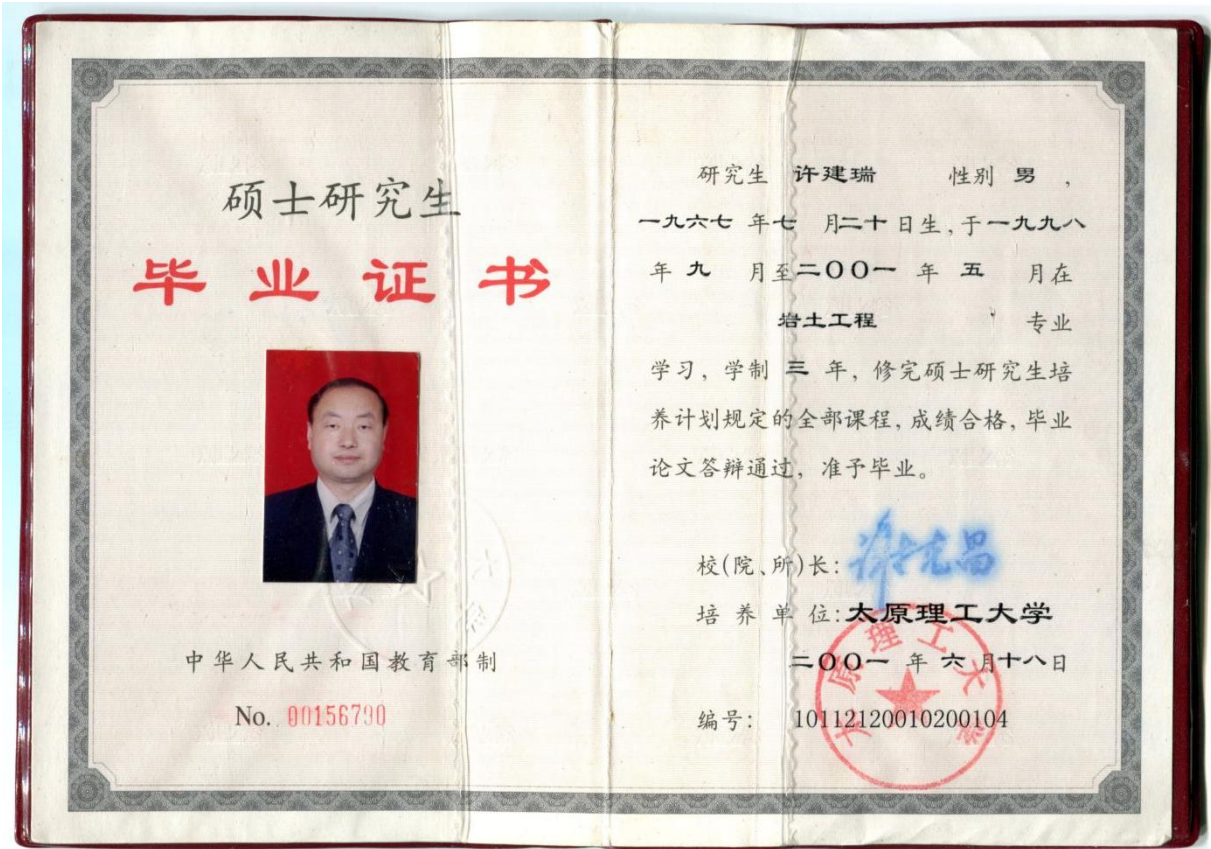 硕士研究生
毕业证书
中华人民共和国教育部制
No. 00156790
研究生 许建瑞 性别 男 ,
一九六七 年七 月二十 日生,于一九九八
年 九 月至二〇〇一 年 五 月在
岩土工程 专业
学习, 学制 三 年, 修完硕士研究生培
养计划规定的全部课程, 成绩合格, 毕业
论文答辩通过, 准予毕业。
校(院、所)长: 谢克昌
培 养 单 位: 太原理工大学
二〇〇一 年 六 月十八日
编号: 10112120010200104
太原理工大学